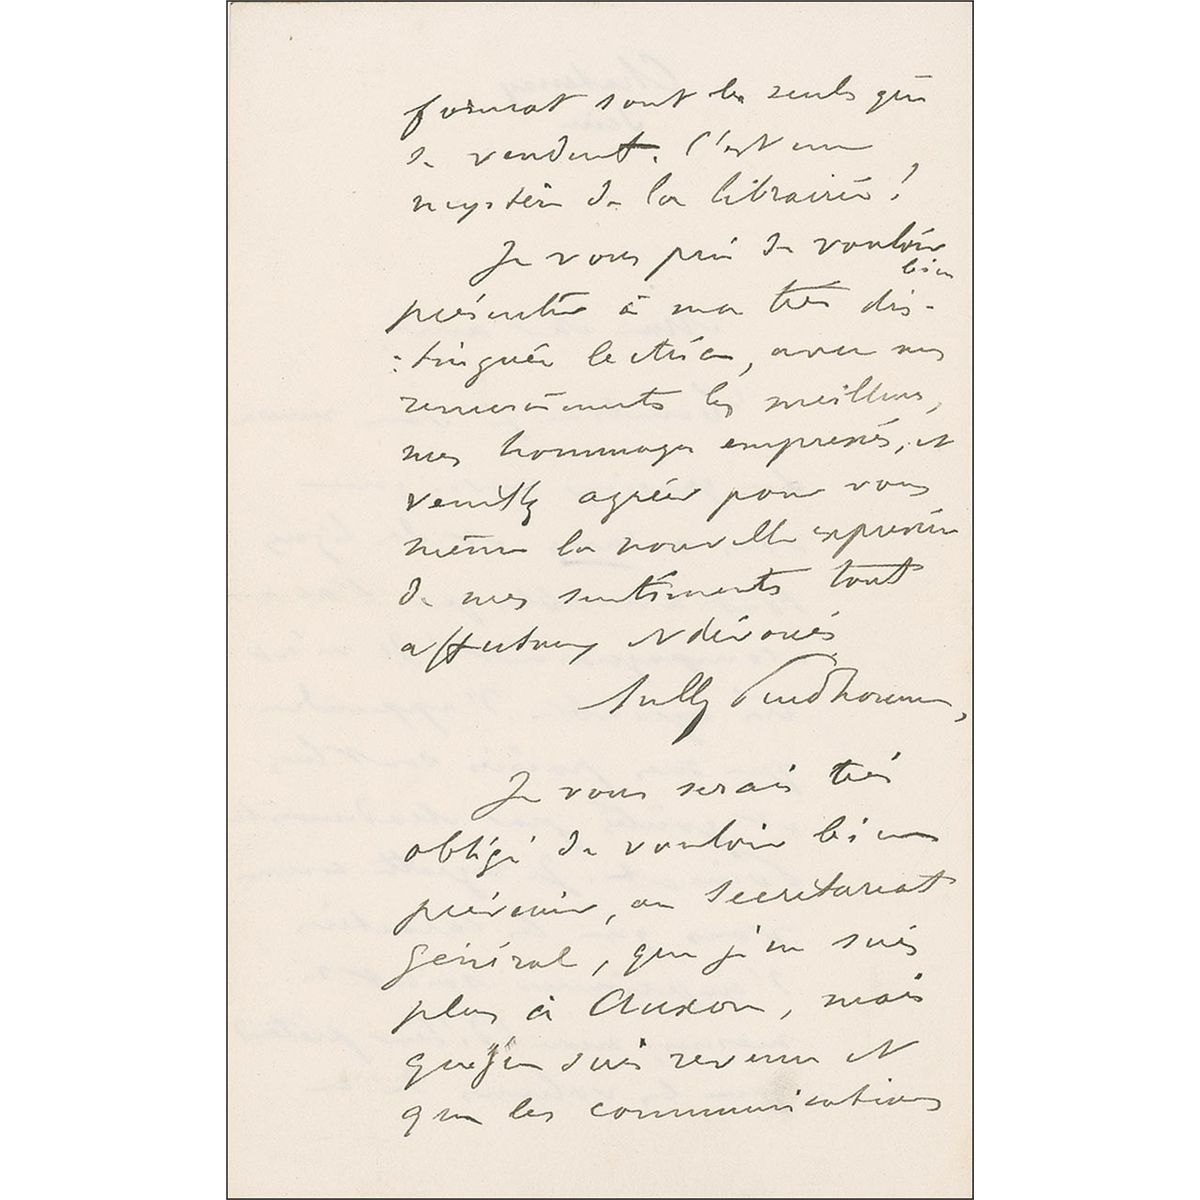 format sont les seuls qui
se vendent. C'est un
mystère de la librairie!
Je vous prie de vouloir
bien
présenter à ma très dis-
:tinguée lectrice, avec mes
remerciements les meilleurs,
mes hommages empressés, et
veuillez agréer pour vous
même la nouvelle expression
de mes sentiments tout
affectueux et dévoués
Sully Prudhomme,
Je vous serais très
obligé de vouloir bien
prévenir, au Secrétariat
général, que je ne suis
plus à Auxon, mais
que je suis revenu et
que les communications